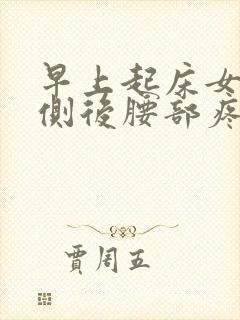 早上起床女
側後腰部疼
賈周五